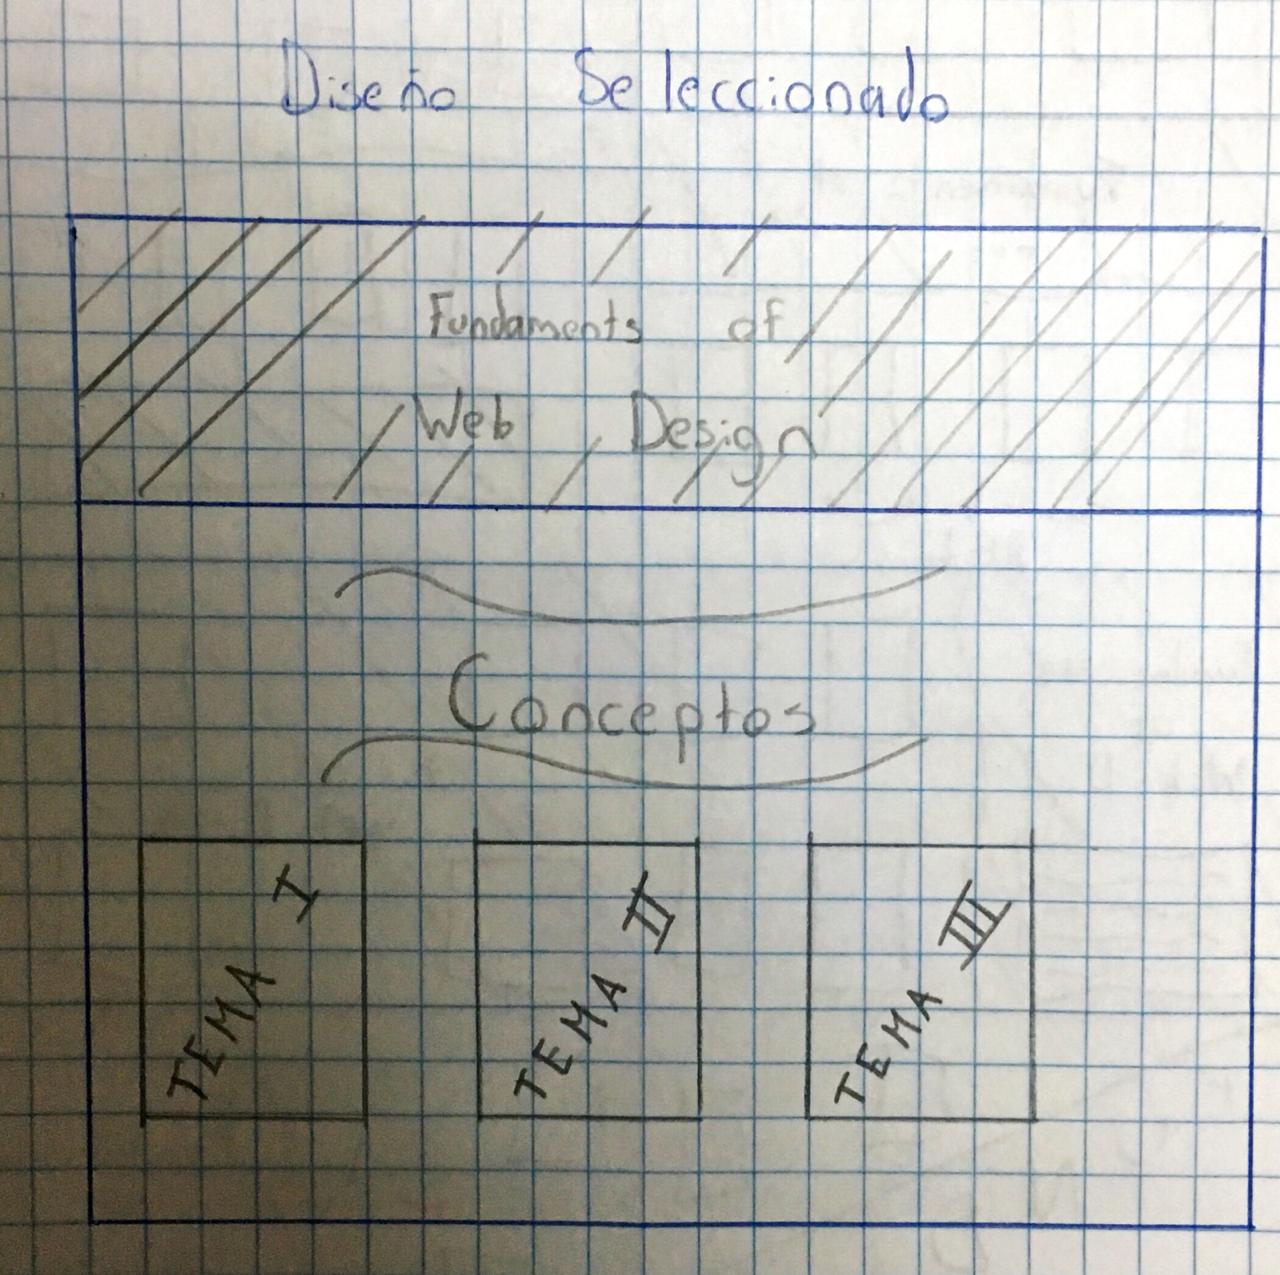 Diseño Seleccionado
Fundaments of
Web Design
Conceptos
TEMA I
TEMA II
TEMA III